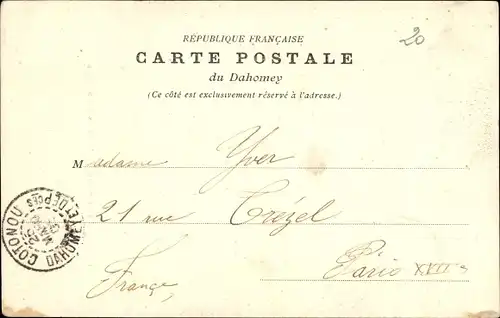 20
RÉPUBLIQUE FRANÇAISE
CARTE POSTALE
du Dahomey
(Ce côté est exclusivement réservé à l'adresse.)
Madame Yver
21 rue Trézel
Paris XVIIe
France,
COTONOU
DAHOMEY ET DÉPCES